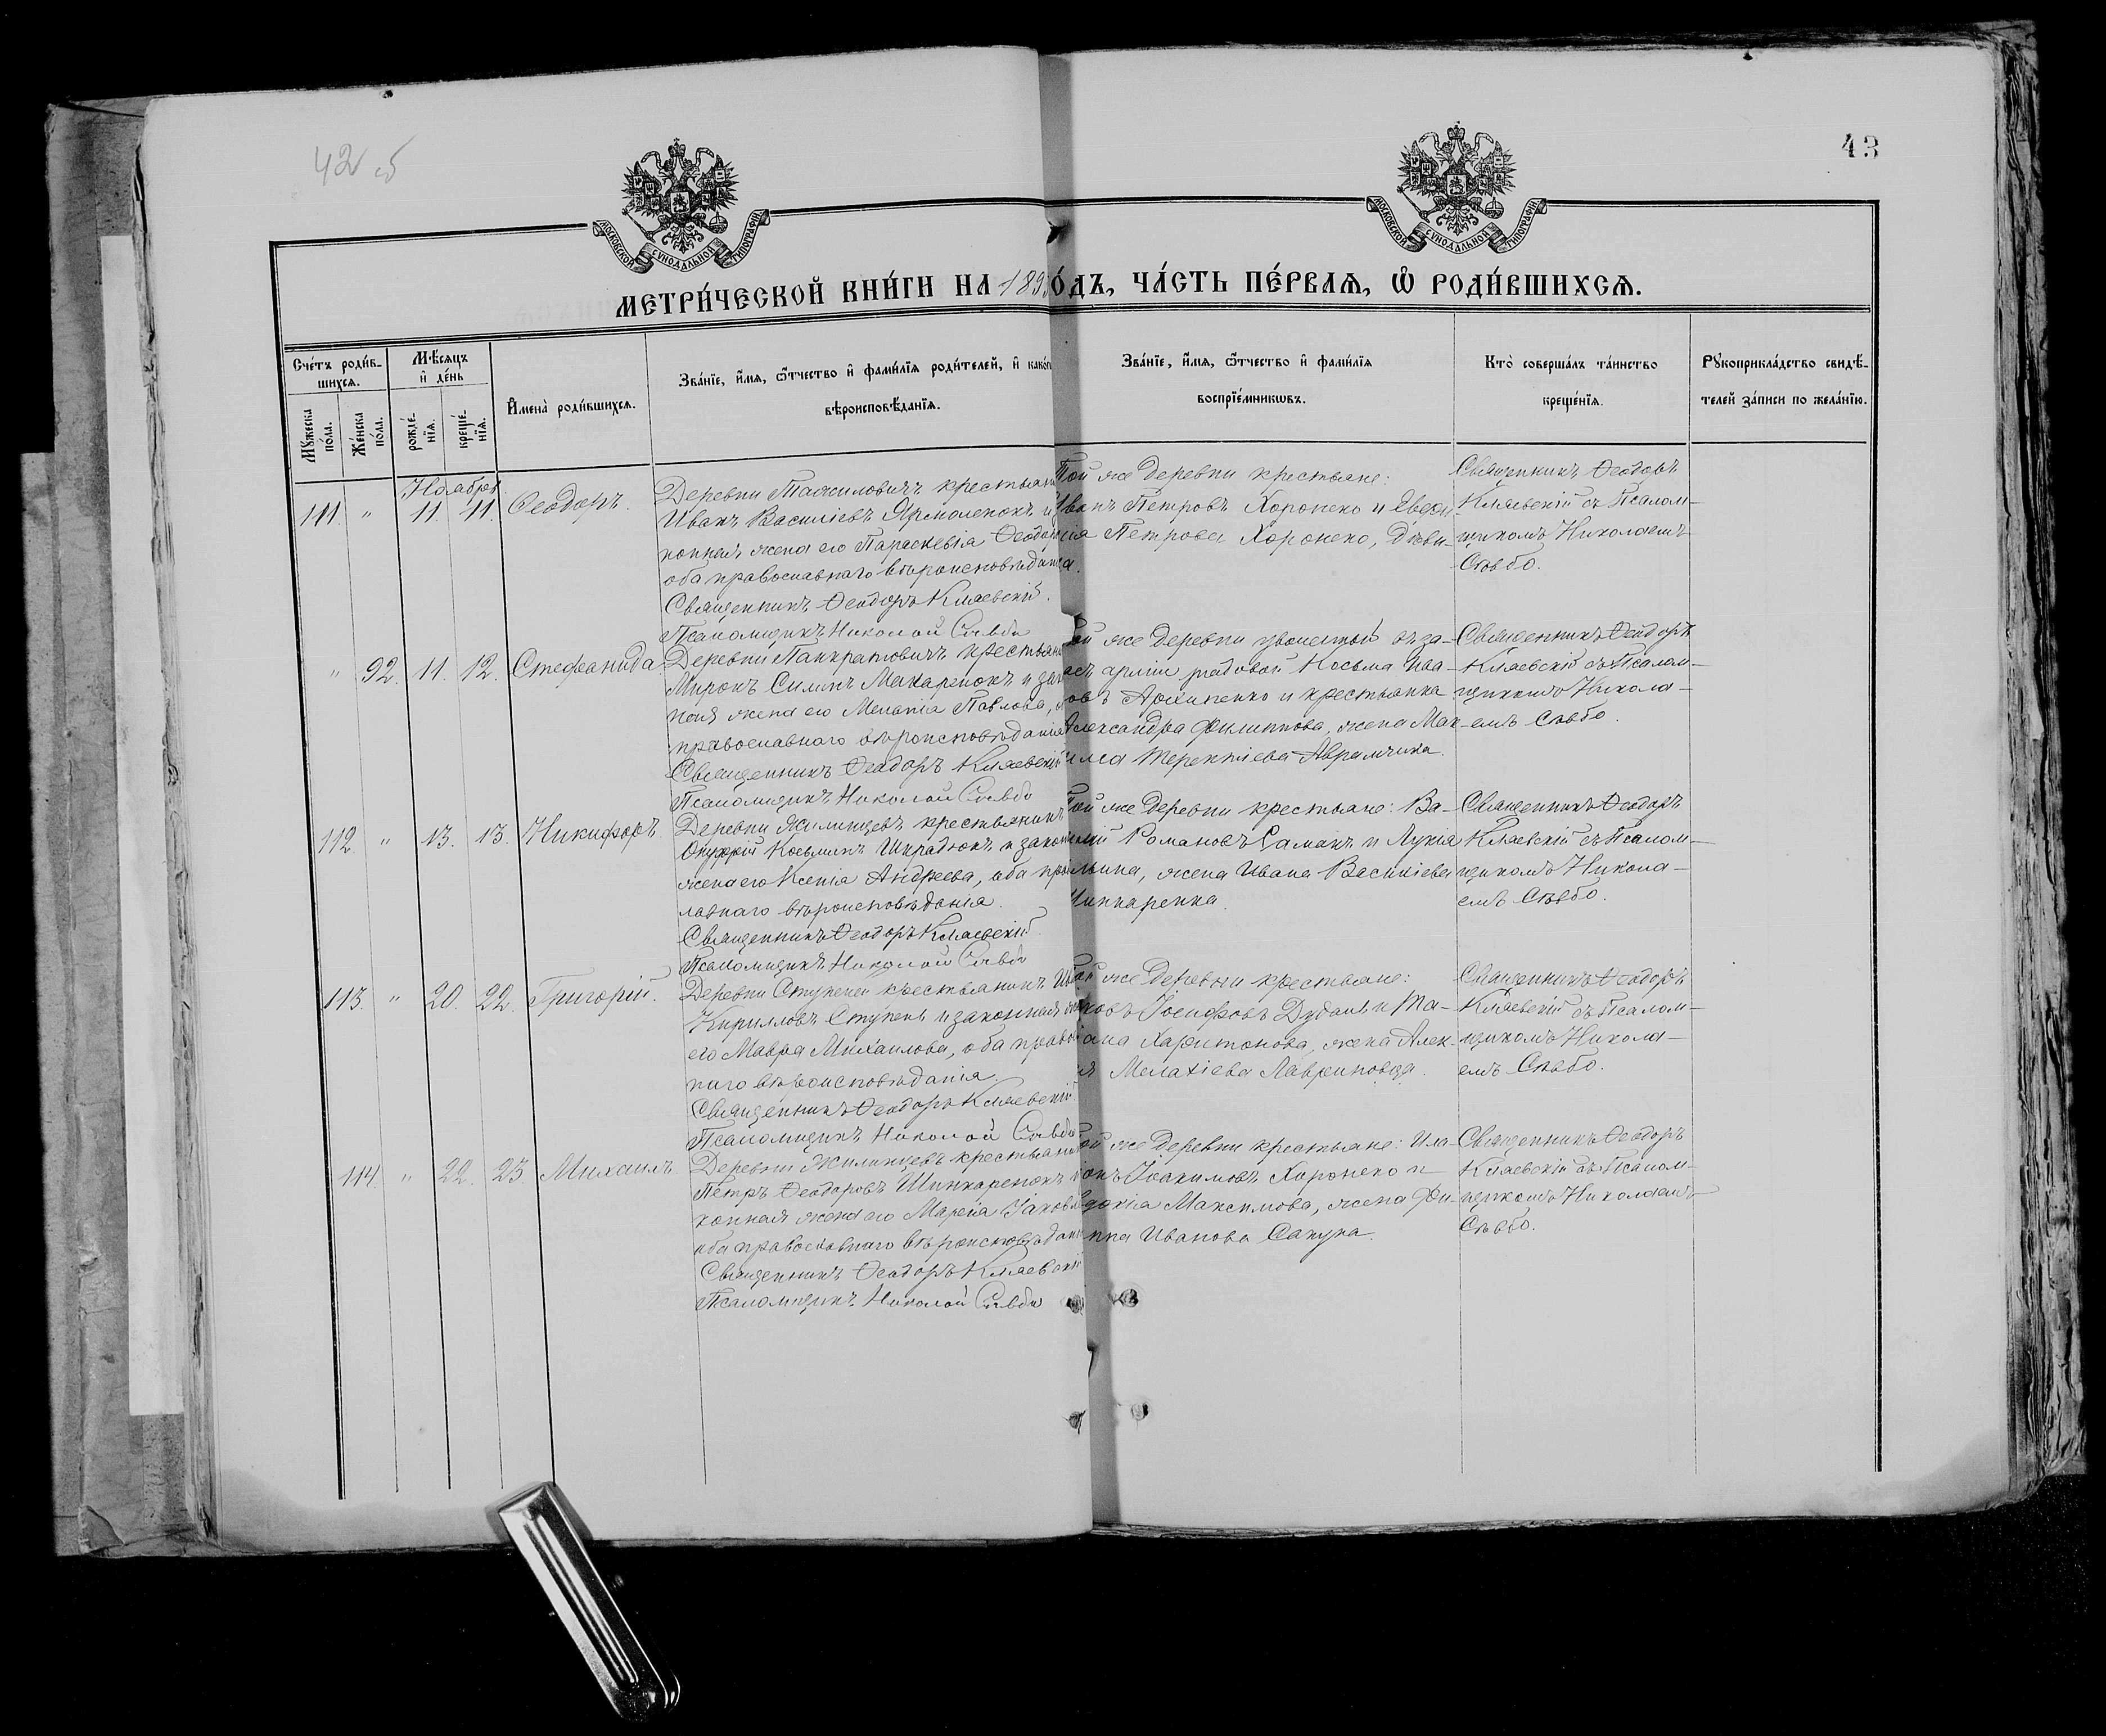 42 об
43
МОСКОВСКОЙ СѴНОДАЛЬНОЙ ТИПОГРАФІИ
МОСКОВСКОЙ СѴНОДАЛЬНОЙ ТИПОГРАФІИ
МЕТРИ́ЧЕСКОЙ КНИ́ГИ НА 189 О́ДЪ, ЧА́СТЬ ПЕ́РВАѦ, Ѡ҆ РОДИ́ВШИХСѦ.
Сче́тъ роди́в-
шихсѧ.
Мꙋ́жеска по́ла.
Же́нска по́ла.
Мѣ́сѧцъ
и҆ де́нь
рожде́-
нїѧ.
креще́-
нїѧ.
И҆мена̀ роди́вшихсѧ.
Зва́нїе, и҆́мѧ, ѻ҆́тчество и҆ фами́лїѧ роди́телей, и҆ како́г
вѣроисповѣ́данїѧ.
Зва́нїе, и҆́мѧ, ѻ҆́тчество и҆ фами́лїѧ
воспрїе́мникѡвъ.
Кто̀ соверша́лъ та́инство
креще́нїѧ.
Рꙋкоприкла́дство свидѣ́-
телей за́писи по жела́нїю.
Ноября
111. " 11. 11. Ѳеодоръ.
Деревни Тажиловичъ крестьяни
Иванъ Василіевъ Ярмоленокъ и
конная жена его Параскевія Ѳеодо
оба православнаго вѣроисповѣданія
Священникъ Ѳеодоръ Кляевскій.
Псаломщикъ Николай Сѣвбо
Той же деревни крестьяне:
Иванъ Петровъ Хоронеко и Евфи-
мія Петрова Хоронеко, дѣви-
ца.
Священникъ Ѳеодоръ
Кляевскій съ Псалом-
щикомъ Николаемъ
Сѣвбо.
" 92. 11. 12. Стефанида.
Деревни Панкратовичъ крестьяни
Миронъ Силинъ Макаренокъ и зак
ноя жена его Меланія Павлова, о
православнаго вѣроисповѣданія
Священникъ Ѳеодоръ Кляевскій
Псаломщикъ Николай Сѣвбо
ой же деревни уволенный въ за-
асъ арміи рядовой Косьма Ива-
овъ Архипенко и крестьянка
Александра Филиппова, жена Мак-
има Терентіева Аврамчика.
Священникъ Ѳеодоръ
Кляевскій съ Псалом-
щикомъ Никола-
емъ Сѣвбо.
112. " 13. 13. Никифоръ.
Деревни Жилинцевъ крестьянинъ
Онуфрій Косьминъ Шкрадюкъ и закон
жена его Ксенія Андреева, оба пра
лавнаго вѣроисповѣданія.
Священникъ Ѳеодоръ Кляевскій
Псаломщикъ Николай Сѣвбо
Той же деревни крестьяне: Ва-
илій Романовъ Саманъ и Лукія
льина, жена Ивана Василіева
Шинкаренка.
Священникъ Ѳеодоръ
Кляевскій съ Псалом-
щикомъ Никола-
емъ Сѣвбо.
113. " 20. 22. Григорій.
Деревни Ступеней крестьянинъ Ив
Кирилловъ Ступень и законная
его Мавра Михаилова, оба право
наго вѣроисповѣданія.
Священникъ Ѳеодоръ Кляевскій.
Псаломщикъ Николай Сѣвбо
ой же деревни крестьяне:
ковъ Іосифовъ Дудаль и Та-
іана Харитонова, жена Алек-
ія Мелахіева Лавриновца.
Священникъ Ѳеодоръ
Кляевскій съ Псалом-
щикомъ Никола-
емъ Сѣвбо.
114. " 22. 23. Михаилъ
Деревни Жилинцевъ крестьяни
Петръ Ѳеодоровъ Шинкаренокъ
конная жена его Марѳа Іаковл
оба православнаго вѣроисповѣдан
Священникъ Ѳеодоръ Кляевскі
Псаломщикъ Николай Сѣвбо
ой же деревни крестьяне: Ила-
іонъ Іоакимовъ Хоронеко и
докія Максимова, жена Фи-
ппа Иванова Сапуна.
Священникъ Ѳеодоръ
Кляевскій съ Псалом-
щикомъ Николаемъ
Сѣвбо.